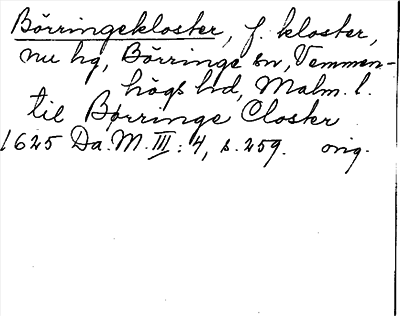 Börringekloster, f. kloster,
nu hg, Börringe sn, Vemmen-
högs hd, Malm. l.
til Børringe Closter
1625 Da. M. III: 4, s. 259. orig.